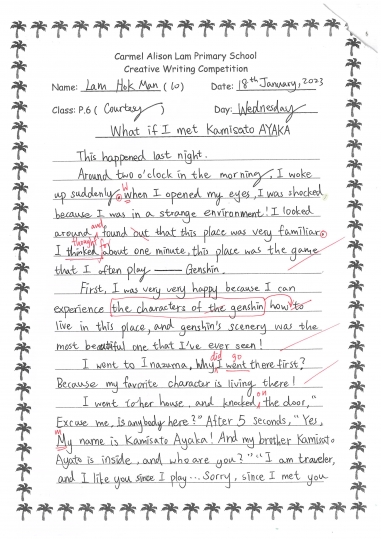 Carmel Alison Lam Primary School
Creative Writing Competition
Name: Lam Hok Man (10) Date: 18th January, 2023
Class: P.6 ( Courtesy ) Day: Wednesday
What if I met Kamisato AYAKA
This happened last night.
Around two o'clock in the morning, I woke
up suddenly. When I opened my eyes, I was shocked
because I was in a strange environment! I looked
and
around, found out that this place was very familiar.
thought for
I thinked about one minute, this place was the game
that I often play —— Genshin.
First, I was very very happy because I can
experience the characters of the genshin how to
live in this place, and genshin's scenery was the
most beautiful one that I've ever seen!
did go
I went to Inazuma, Why I went there first?
Because my favorite character is living there!
on
I went to her house, and knocked the door, "
Excuse me, Is anybody here?" After 5 seconds, "Yes,
m
My name is Kamisato Ayaka! And my brother Kamisato
Ayato is inside, and who are you?" "I am traveler,
and I like you since I play... Sorry, since I met you